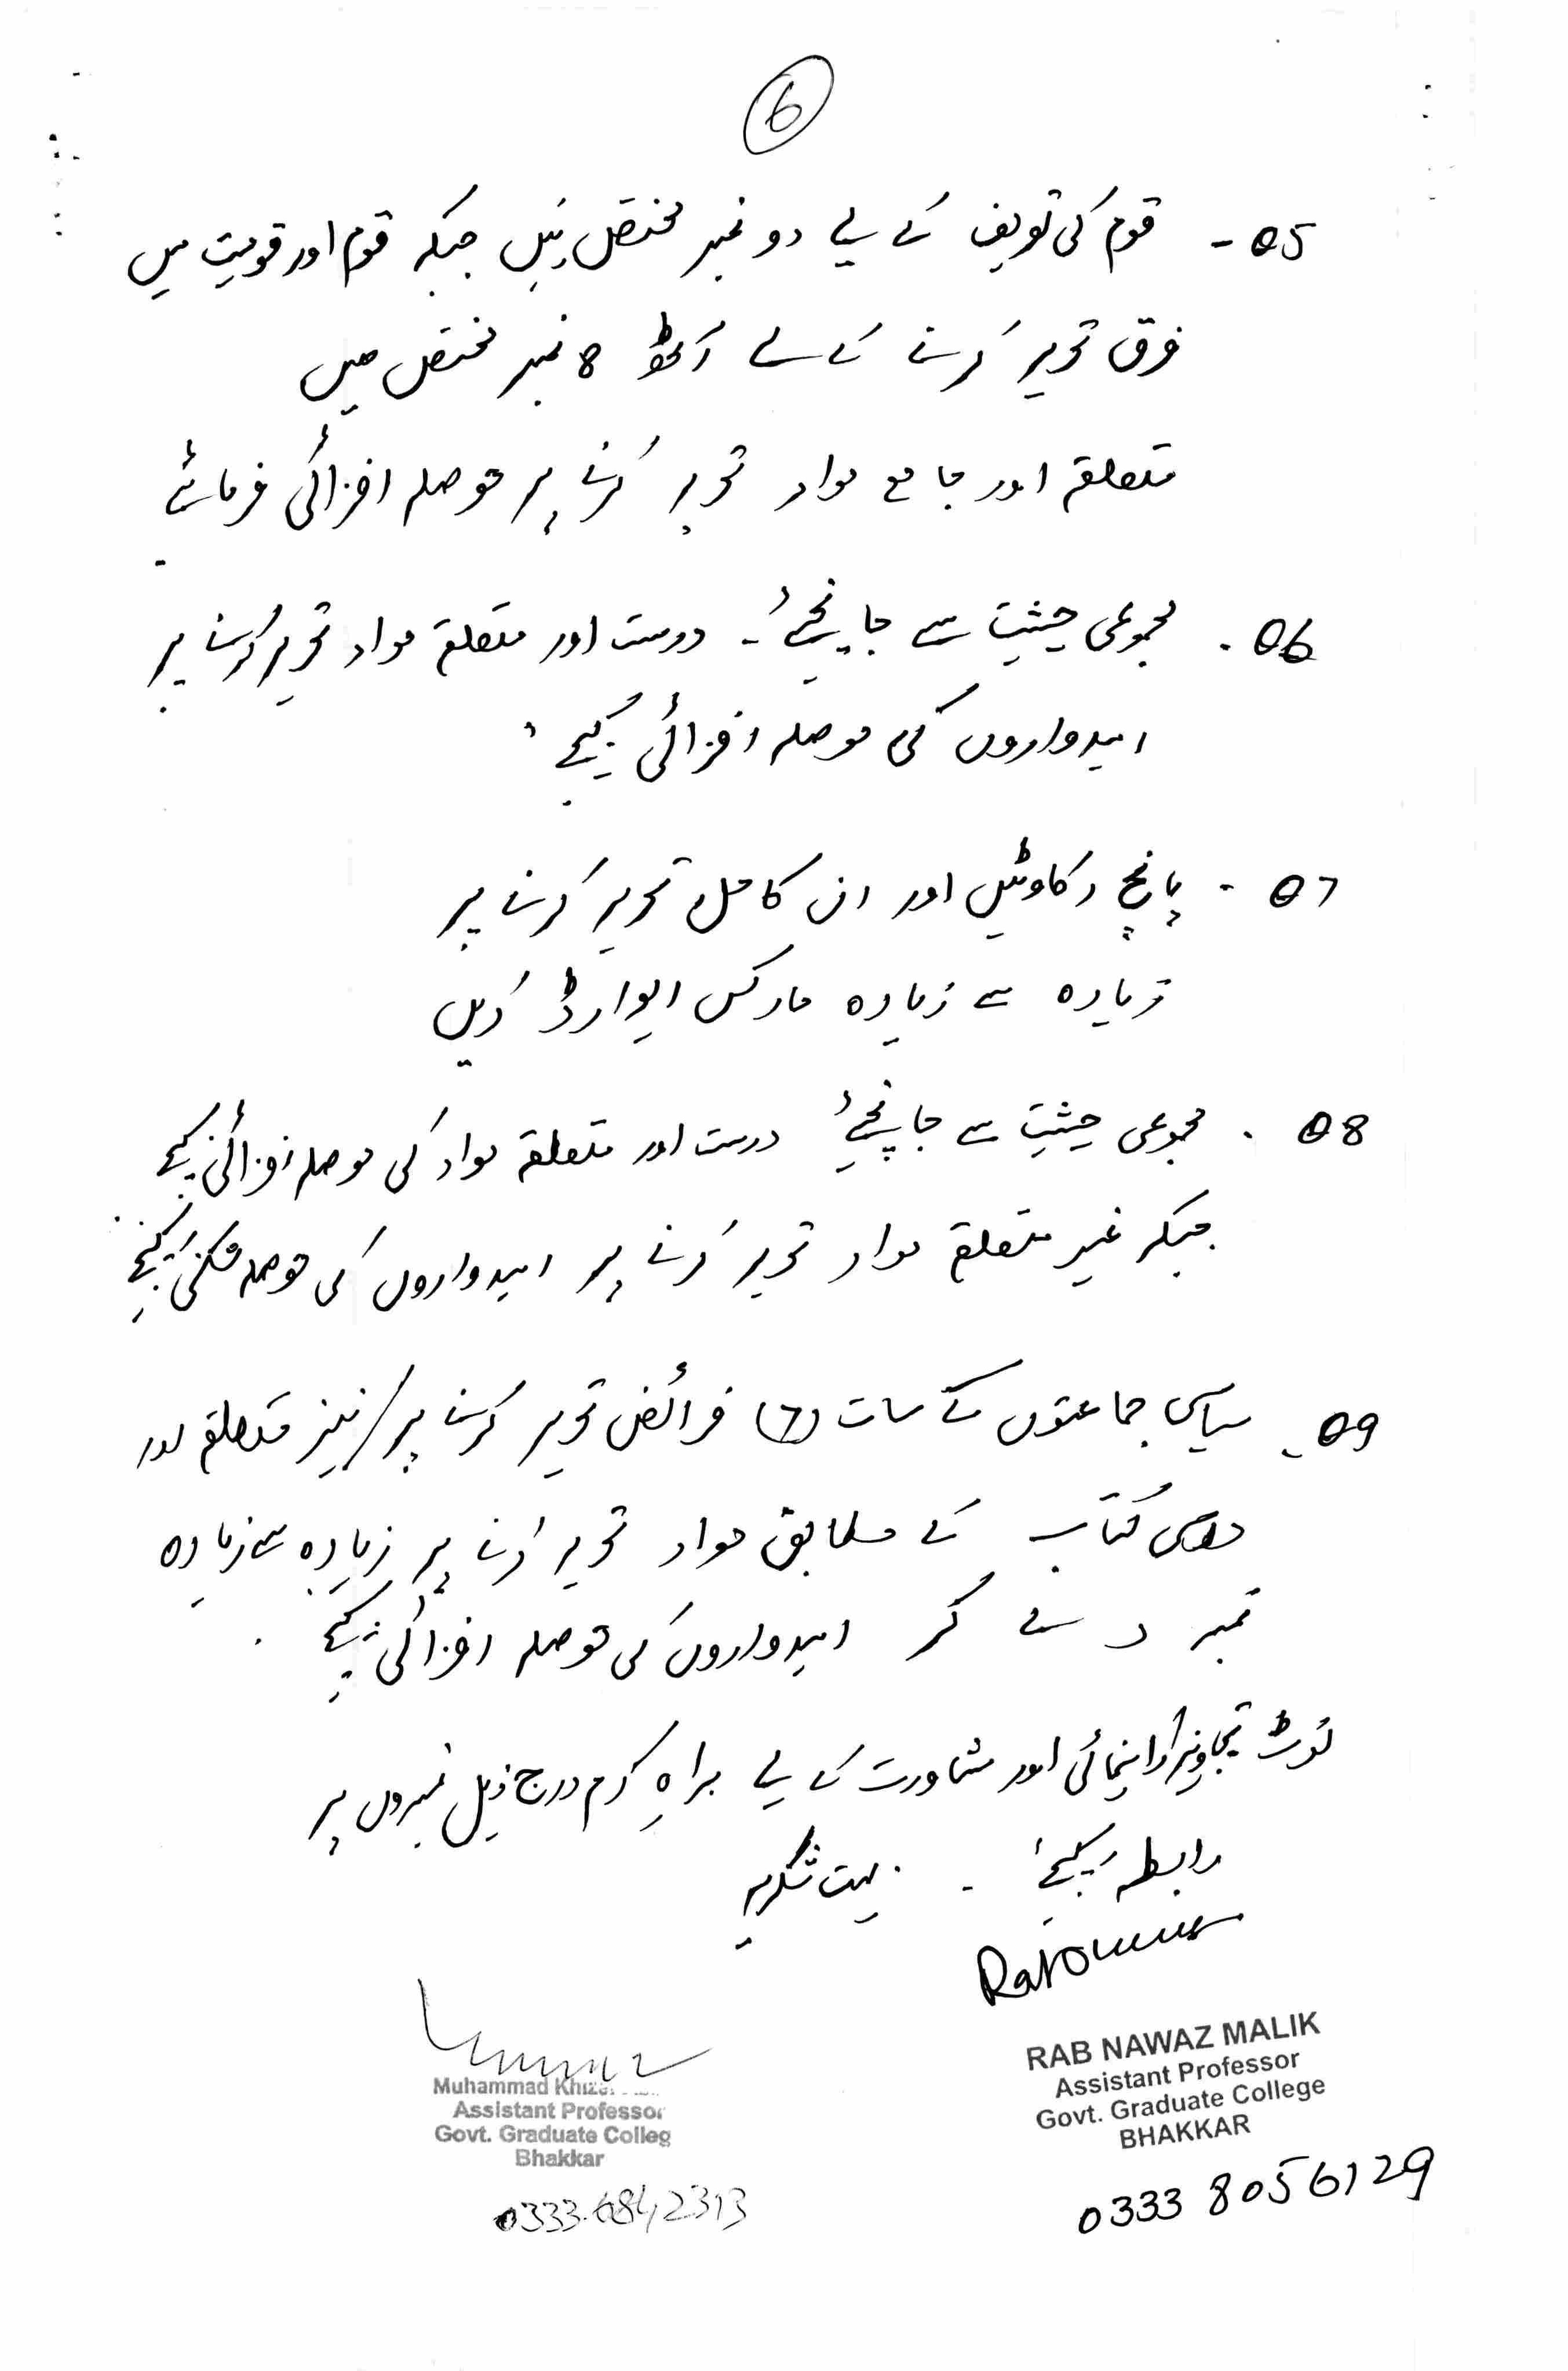 6
05- قوم کی تعریف کے لیے دو نمبر مختص ہیں جبکہ قوم اور قومیت میں
فرق تحریر کرنے کے لیے آٹھ 8 نمبر مختص ہیں
متعلقہ اور جامع مواد تحریر کرنے پر حوصلہ افزائی فرمائیے
06- مجموعی حیثیت سے جانچئے۔ درست اور متعلقہ مواد تحریر کرنے پر
امیدواروں کی حوصلہ افزائی کیجیے
07- پانچ رکاوٹیں اور ان کا حل تحریر کرنے پر
زیادہ سے زیادہ مارکس ایوارڈ کریں
08- مجموعی حیثیت سے جانچئے درست اور متعلقہ مواد کی حوصلہ افزائی کیجیے
جبکہ غیر متعلقہ مواد تحریر کرنے پر امیدواروں کی حوصلہ شکنی کیجئے
09- سیاسی جماعتوں کے سات (7) فرائض تحریر کرنے پر/نیز متعلقہ اور
درسی کتاب کے مطابق مواد تحریر کرنے پر زیادہ سے زیادہ
نمبر دے کر امیدواروں کی حوصلہ افزائی کیجیے
نوٹ تجاویز/راہنمائی اور مشاورت کے لیے براہِ کرم درج ذیل نمبروں پر
رابطہ کیجئے - بہت شکریہ
RAB NAWAZ MALIK
Assistant Professor
Govt. Graduate College
BHAKKAR
0333 8056129
Muhammad
Assistant Professor
Govt. Graduate Colleg
Bhakkar
0333.6842313